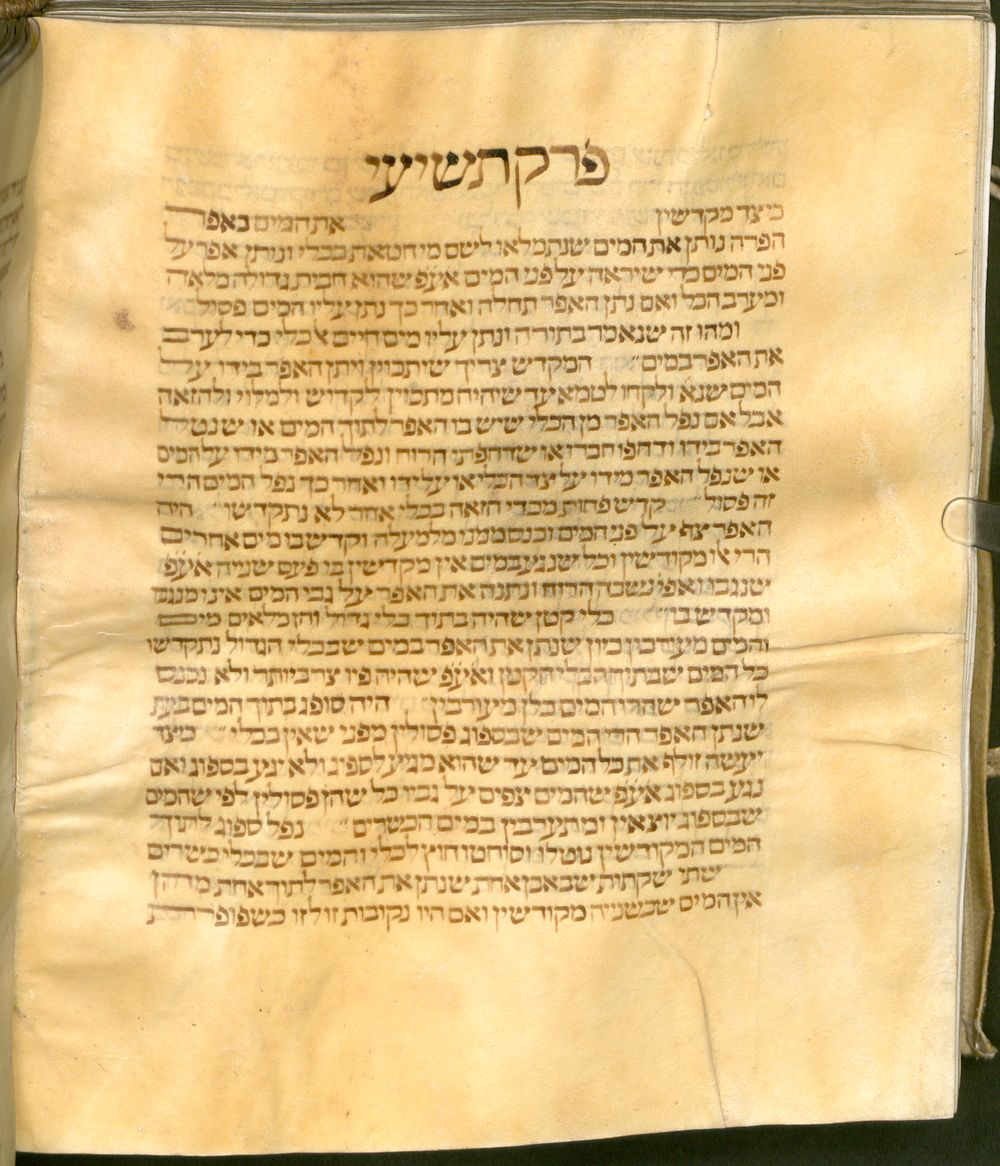 פרק תשיעי
כיצד מקדשין את המים באפר
הפרה נותן את המים שנתמלאו לשם מי חטאת בכלי ונותן אפר על
פני המים כדי שיראה על פני המים אע״פ שהוא חבית גדולה מלאה
ומערב הכל ואם נתן האפר תחלה ואחר כך נתן עליו המים פסול
ומהו זה שנאמר בתורה ונתן עליו מים חיים א׳ כלי כדי לערב
את האפר במים״ המקדש צריך שיתכוין ויתן האפר בידו על
המים שנ׳א ולקחו לטמא עד שיהיה מתכוין לקדוש ולמלוי ולהזאה
אבל אם נפל האפר מן הכלי שיש בו האפר לתוך המים או שנטל
האפר בידו ודחפו חברו או שדחפתו הרוח ונפל האפר מידו על המים
או שנפל האפר מידו על צד הכלי או על ידו ואחר כך נפל המים הרי
זה פסול״ קדש פחות מכדי הזאה בכלי אחר לא נתקדשו״ היה
האפר צף על פני המים וכנס ממנו מלמעלה וקדש בו מים אחרים
הרי אלו מקודשין וכל שנגע במים אין מקדשין בו פעם שניה אע״פ
שנגבו ואפי׳ נשבה הרוח ונתנה את האפר על גבי המים אינו מנגבו
ומקדש בו״ כלי קטן שהיה בתוך כלי גדול והן מלאים מים
והמים מעורבין כיון שנתן את האפר במים שבכלי הגדול נתקדשו
כל המים שבתוך הכלי הקטן ואע״פ שהיה פיו צר ביותר ולא נכנס
לו האפר שהרי המים כלן מיעורבין״ היה סופג בתוך המים בעת
שנתן האפר הרי המים שבספוג פסולין מפני שאין בכלי״ כיצד
יעשה זולף את כל המים עד שהוא מגיע לספוג ולא יגע בספוג ואם
נגע בספוג אע״פ שהמים צפים על גביו כל שהן פסולין לפי שהמים
שבספוג יוצאין ומתערבין במים הכשרים״ נפל ספוג לתוך
המים המקודשין נוטלו וסוחטו חוץ לכלי והמים שבכלי כשרים
שתי שקתות שבאבן אחת שנתן את האפר לתוך אחת מהן
אין המים שבשניה מקודשין ואם היו נקובות זו לזו כשפופרת